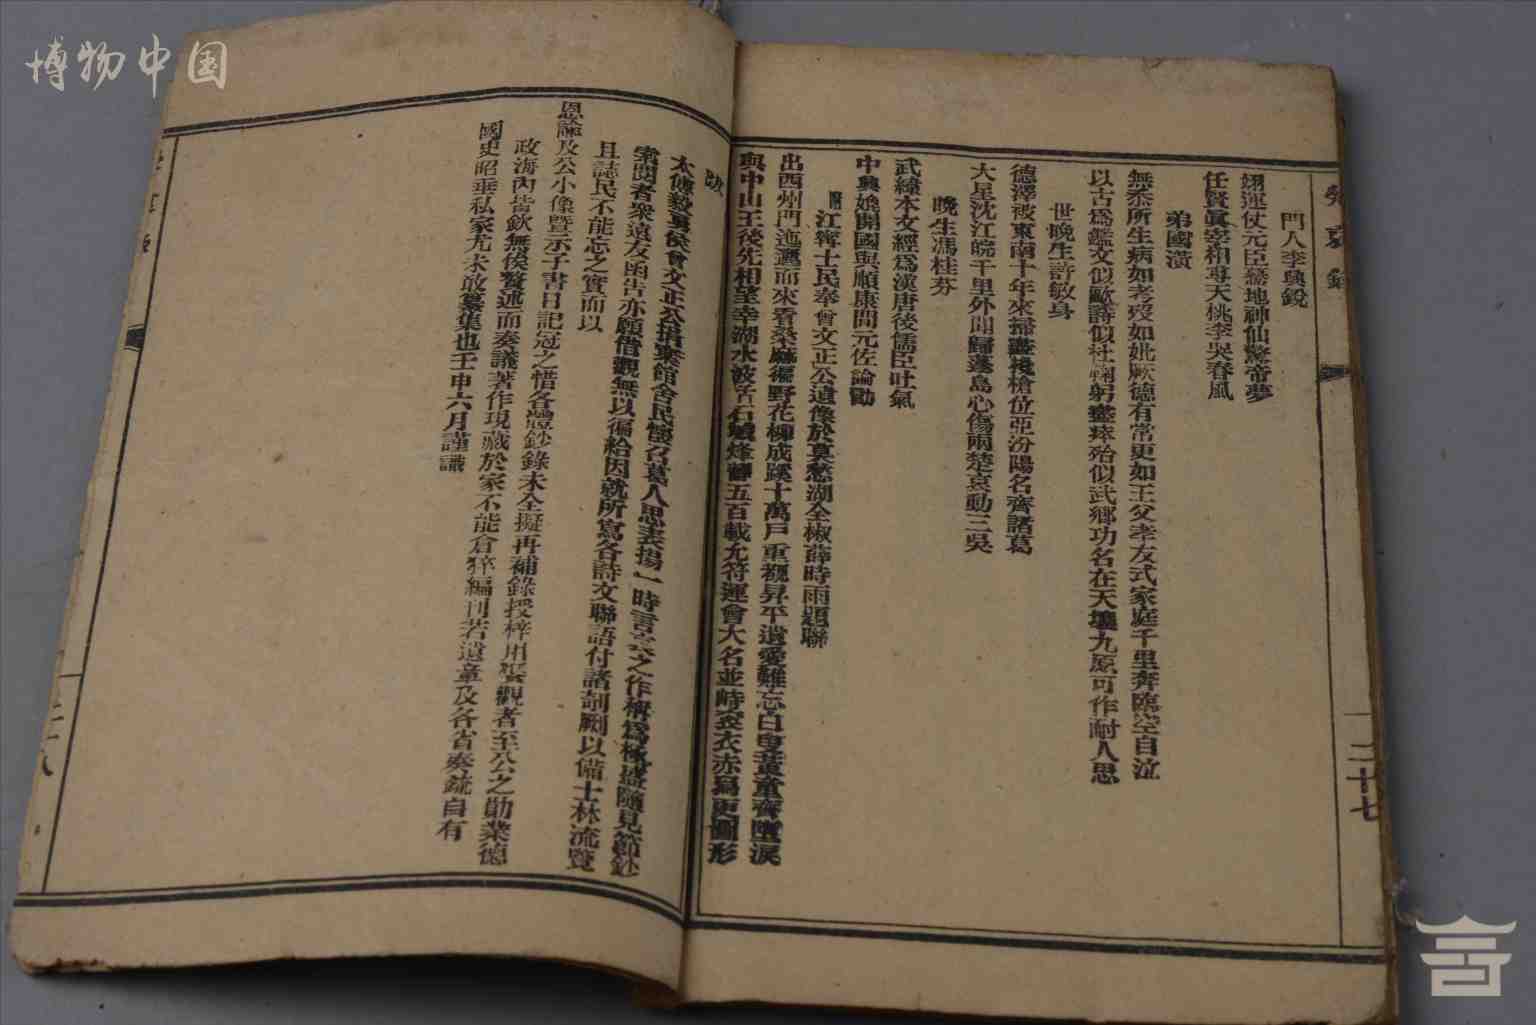 博物中国
門人李興銳
翊運仗元臣驀地神仙驚帝夢
任賢眞宰相專天桃李哭春風
弟國潢
無忝所生病如考歿如妣厥德有常更如王父孝友式家庭千里奔臨空自泣
以古爲鑑文似歐詩似杜鞠躬盡瘁殆似武鄉功名在天壤九原可作耐人思
世晚生許敏身
德澤被東南十年來掃盡欃槍位亞汾陽名齊諸葛
大星沈江皖千里外聞歸蓬島心傷兩楚哀動三吳
晚生馮桂芬
武緯本文經爲漢唐後儒臣吐氣
中興媲開國與順康間元佐論勳
附江寗士民奉曾文正公遺像於莫愁湖全椒薛時雨題聯
出西州門迤邐而來看桑麻徧野花柳成蹊十萬戶重覩昇平遺愛難忘白叟黃童齊墮淚
與中山王後先相望幸湖水波石城烽靜五百載允符運會大名並峙袞衣赤舄更圖形
跋
太傅毅勇侯曾文正公捐棄館舍民懷召葛人思表揚一時之作稱爲極盛隨見節鈔
索閱者衆遠友函告亦願借觀無以徧給因就所寫各詩文聯語付諸剞劂以備士林流覽
且誌民不能忘之實而以
恩諭及公小像曁示子書日記冠之惜各體鈔錄未全擬再補錄授梓用饗觀者至公之勛業德
政海內皆欽無俟贅述而奏議著作現藏於家不能倉猝編刊若遺章及各省奏疏自有
國史昭垂私家尤未敢纂集也壬申六月謹識
二十七
二十八